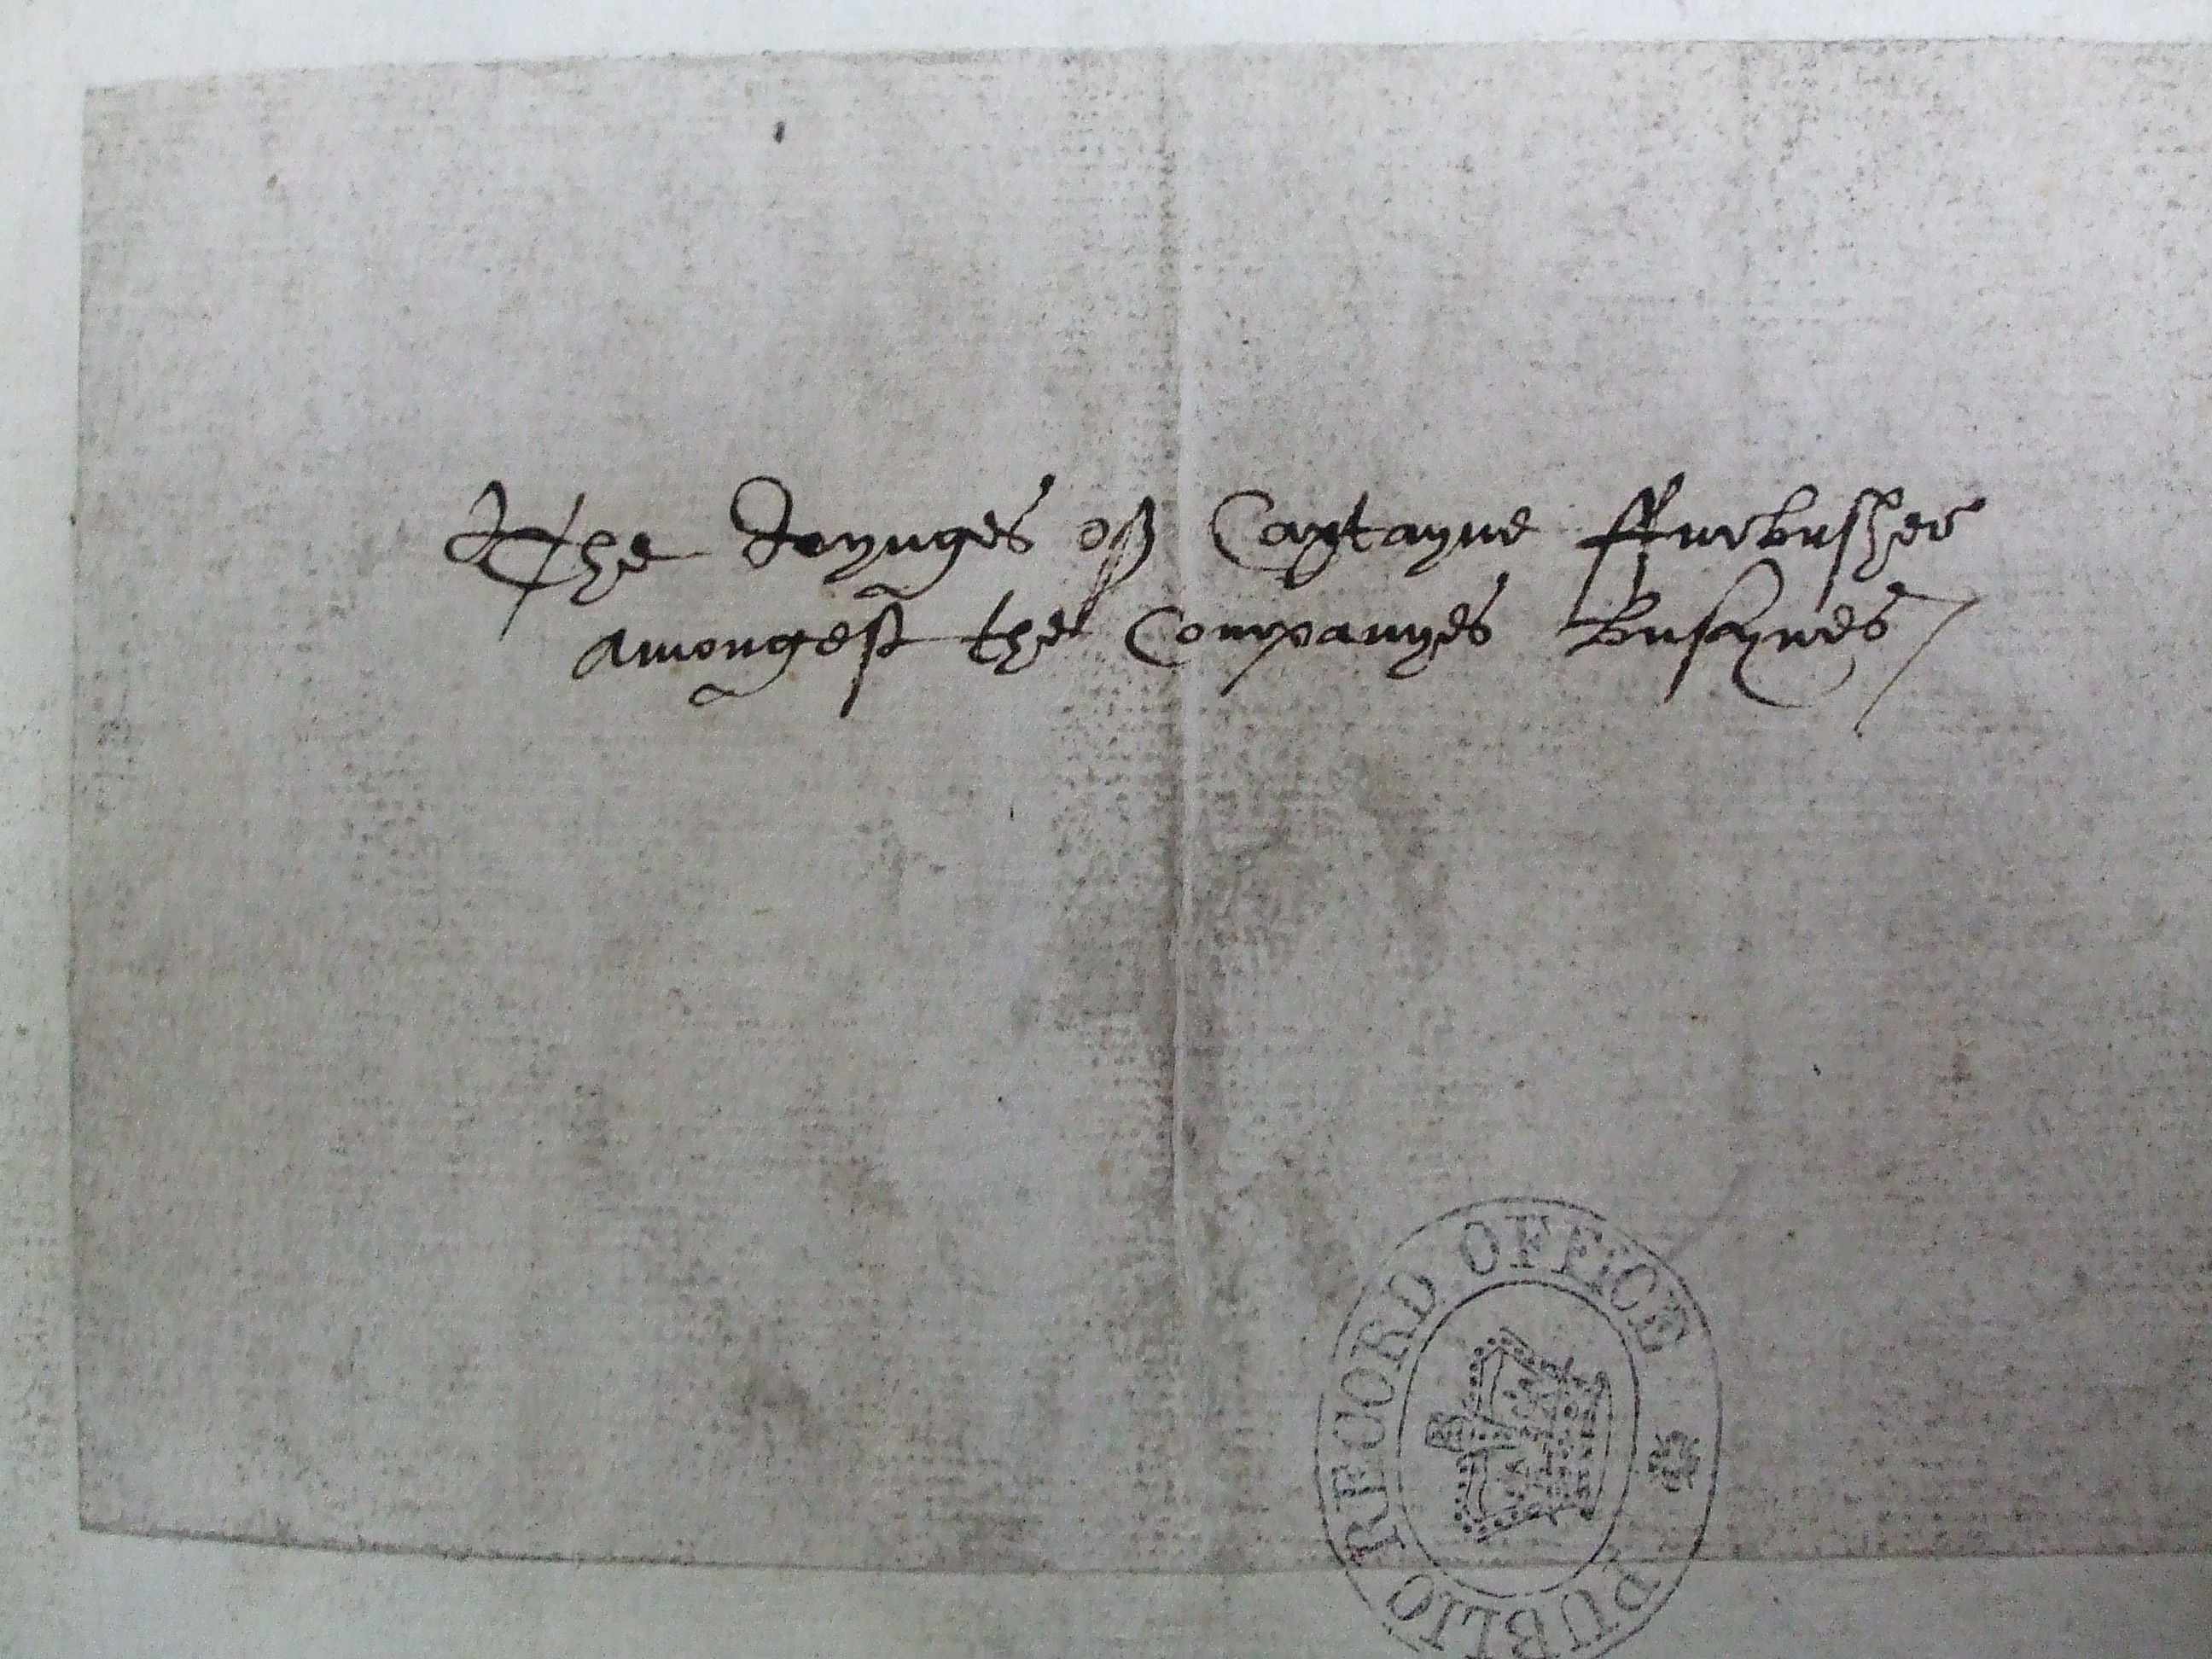 The Doynges of Captayne ffurbusher
amongest the Companyes Busynes /
PUBLIC RECORD OFFICE